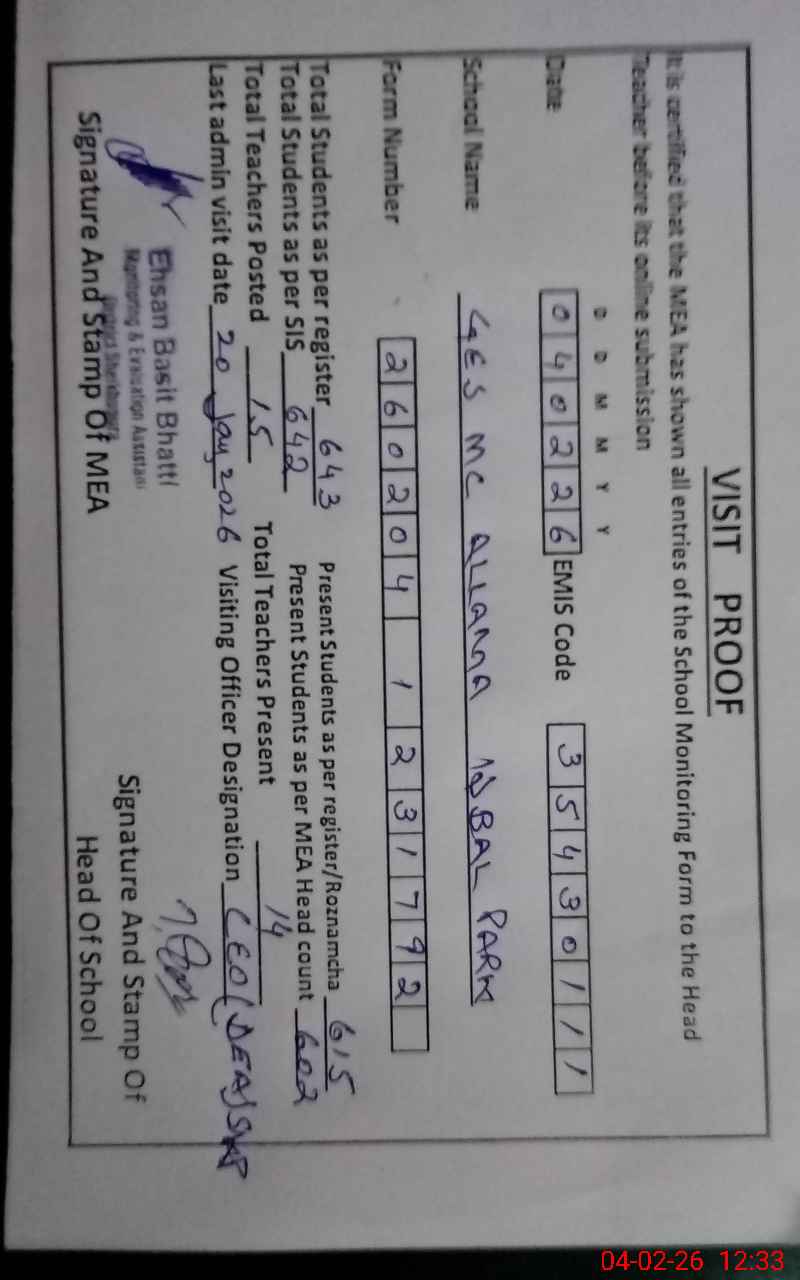 VISIT PROOF
It is certified that the MEA has shown all entries of the School Monitoring Form to the Head
Teacher before its online submission
D D M M Y Y
Date 040226 EMIS Code 35430111
School Name GES MC ALLAMA IQBAL PARK
Form Number 2602041231792
Total Students as per register 643 Present Students as per register/Roznamcha 615
Total Students as per SIS 642 Present Students as per MEA Head count 602
Total Teachers Posted 15 Total Teachers Present 14
Last admin visit date 20 Jan 2026 Visiting Officer Designation CEO (DEA) SKP
Ehsan Basit Bhatti
Monitoring & Evaluation Assistant
District Sheikhupura
Signature And Stamp Of MEA
Signature And Stamp Of
Head Of School
04-02-26 12:33